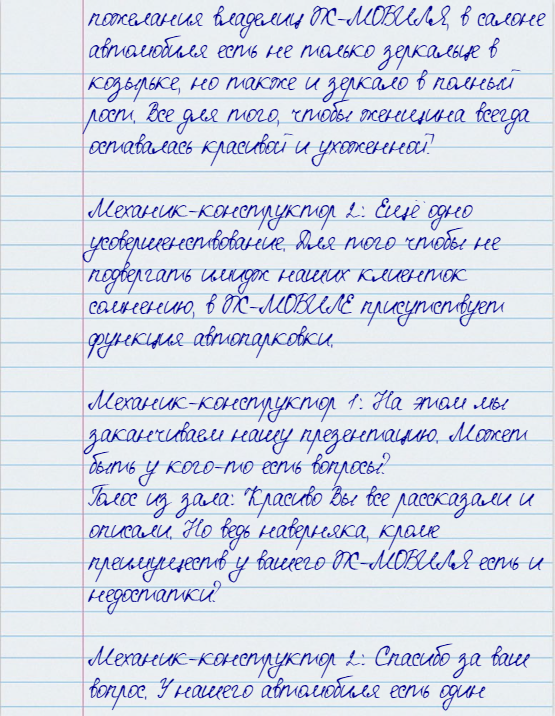 пожелания владелиц Ж-МОБИЛЯ, в салоне
автомобиля есть не только зеркальце в
козырьке, но также и зеркало в полный
рост. Все для того, чтобы женщина всегда
оставалась красивой и ухоженной!
Механик-конструктор 2: Ещё одно
усовершенствование. Для того чтобы не
подвергать имидж наших клиенток
сомнению, в Ж-МОБИЛЕ присутствует
функция автопарковки.
Механик-конструктор 1: На этом мы
заканчиваем нашу презентацию. Может
быть у кого-то есть вопросы?
Голос из зала: Красиво Вы все рассказали и
описали. Но ведь наверняка, кроме
преимуществ у вашего Ж-МОБИЛЯ есть и
недостатки?
Механик-конструктор 2: Спасибо за ваш
вопрос. У нашего автомобиля есть один